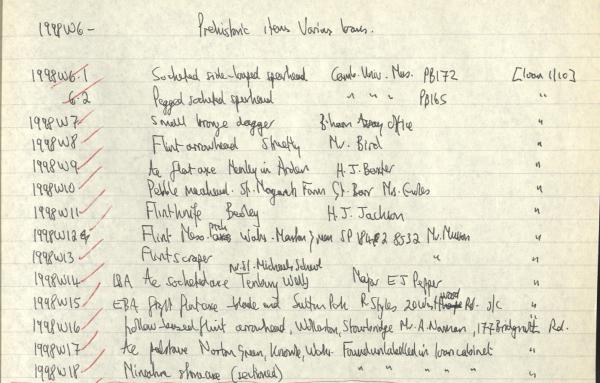 1998W6- Prehistoric items Various loans.
1998W6.1 Socketed side-looped spearhead Camb. Univ. Mus. PB172 [loan 1/10]
6.2 Pegged socketed spearhead " " " PB165 "
1998W7 Small bronze dagger B'ham Assay Office "
1998W8 Flint arrowhead Mr. Bird "
1998W9 Ae flat axe Henley in Arden H.J. Baxter "
1998W10 Pebble macehead. Farm Gt. Barr Ms. "
1998W11 Flint knife Beoley H.J. Jackson "
1998W12 Flint Meso. Warks. Marston Green SP 18482 8532 Mr. "
1998W13 Flint scraper " "
1998W14 LBA Ae socketed axe nr. St. Michaels School Tenbury Wells Major E J Pepper "
1998W15 EBA flat axe - blade end Sutton Park R. Styles Rd. S/C "
1998W16 Hollow-based flint arrowhead, Wollaston, Stourbridge Mr. A. Norman, 177 Bridgnorth Rd. "
1998W17 Ae palstave Norton Green, Knowle, Warks. Found unlabelled in loan cabinet "
1998W18 Miniature stone axe (sectioned) " " " " " "